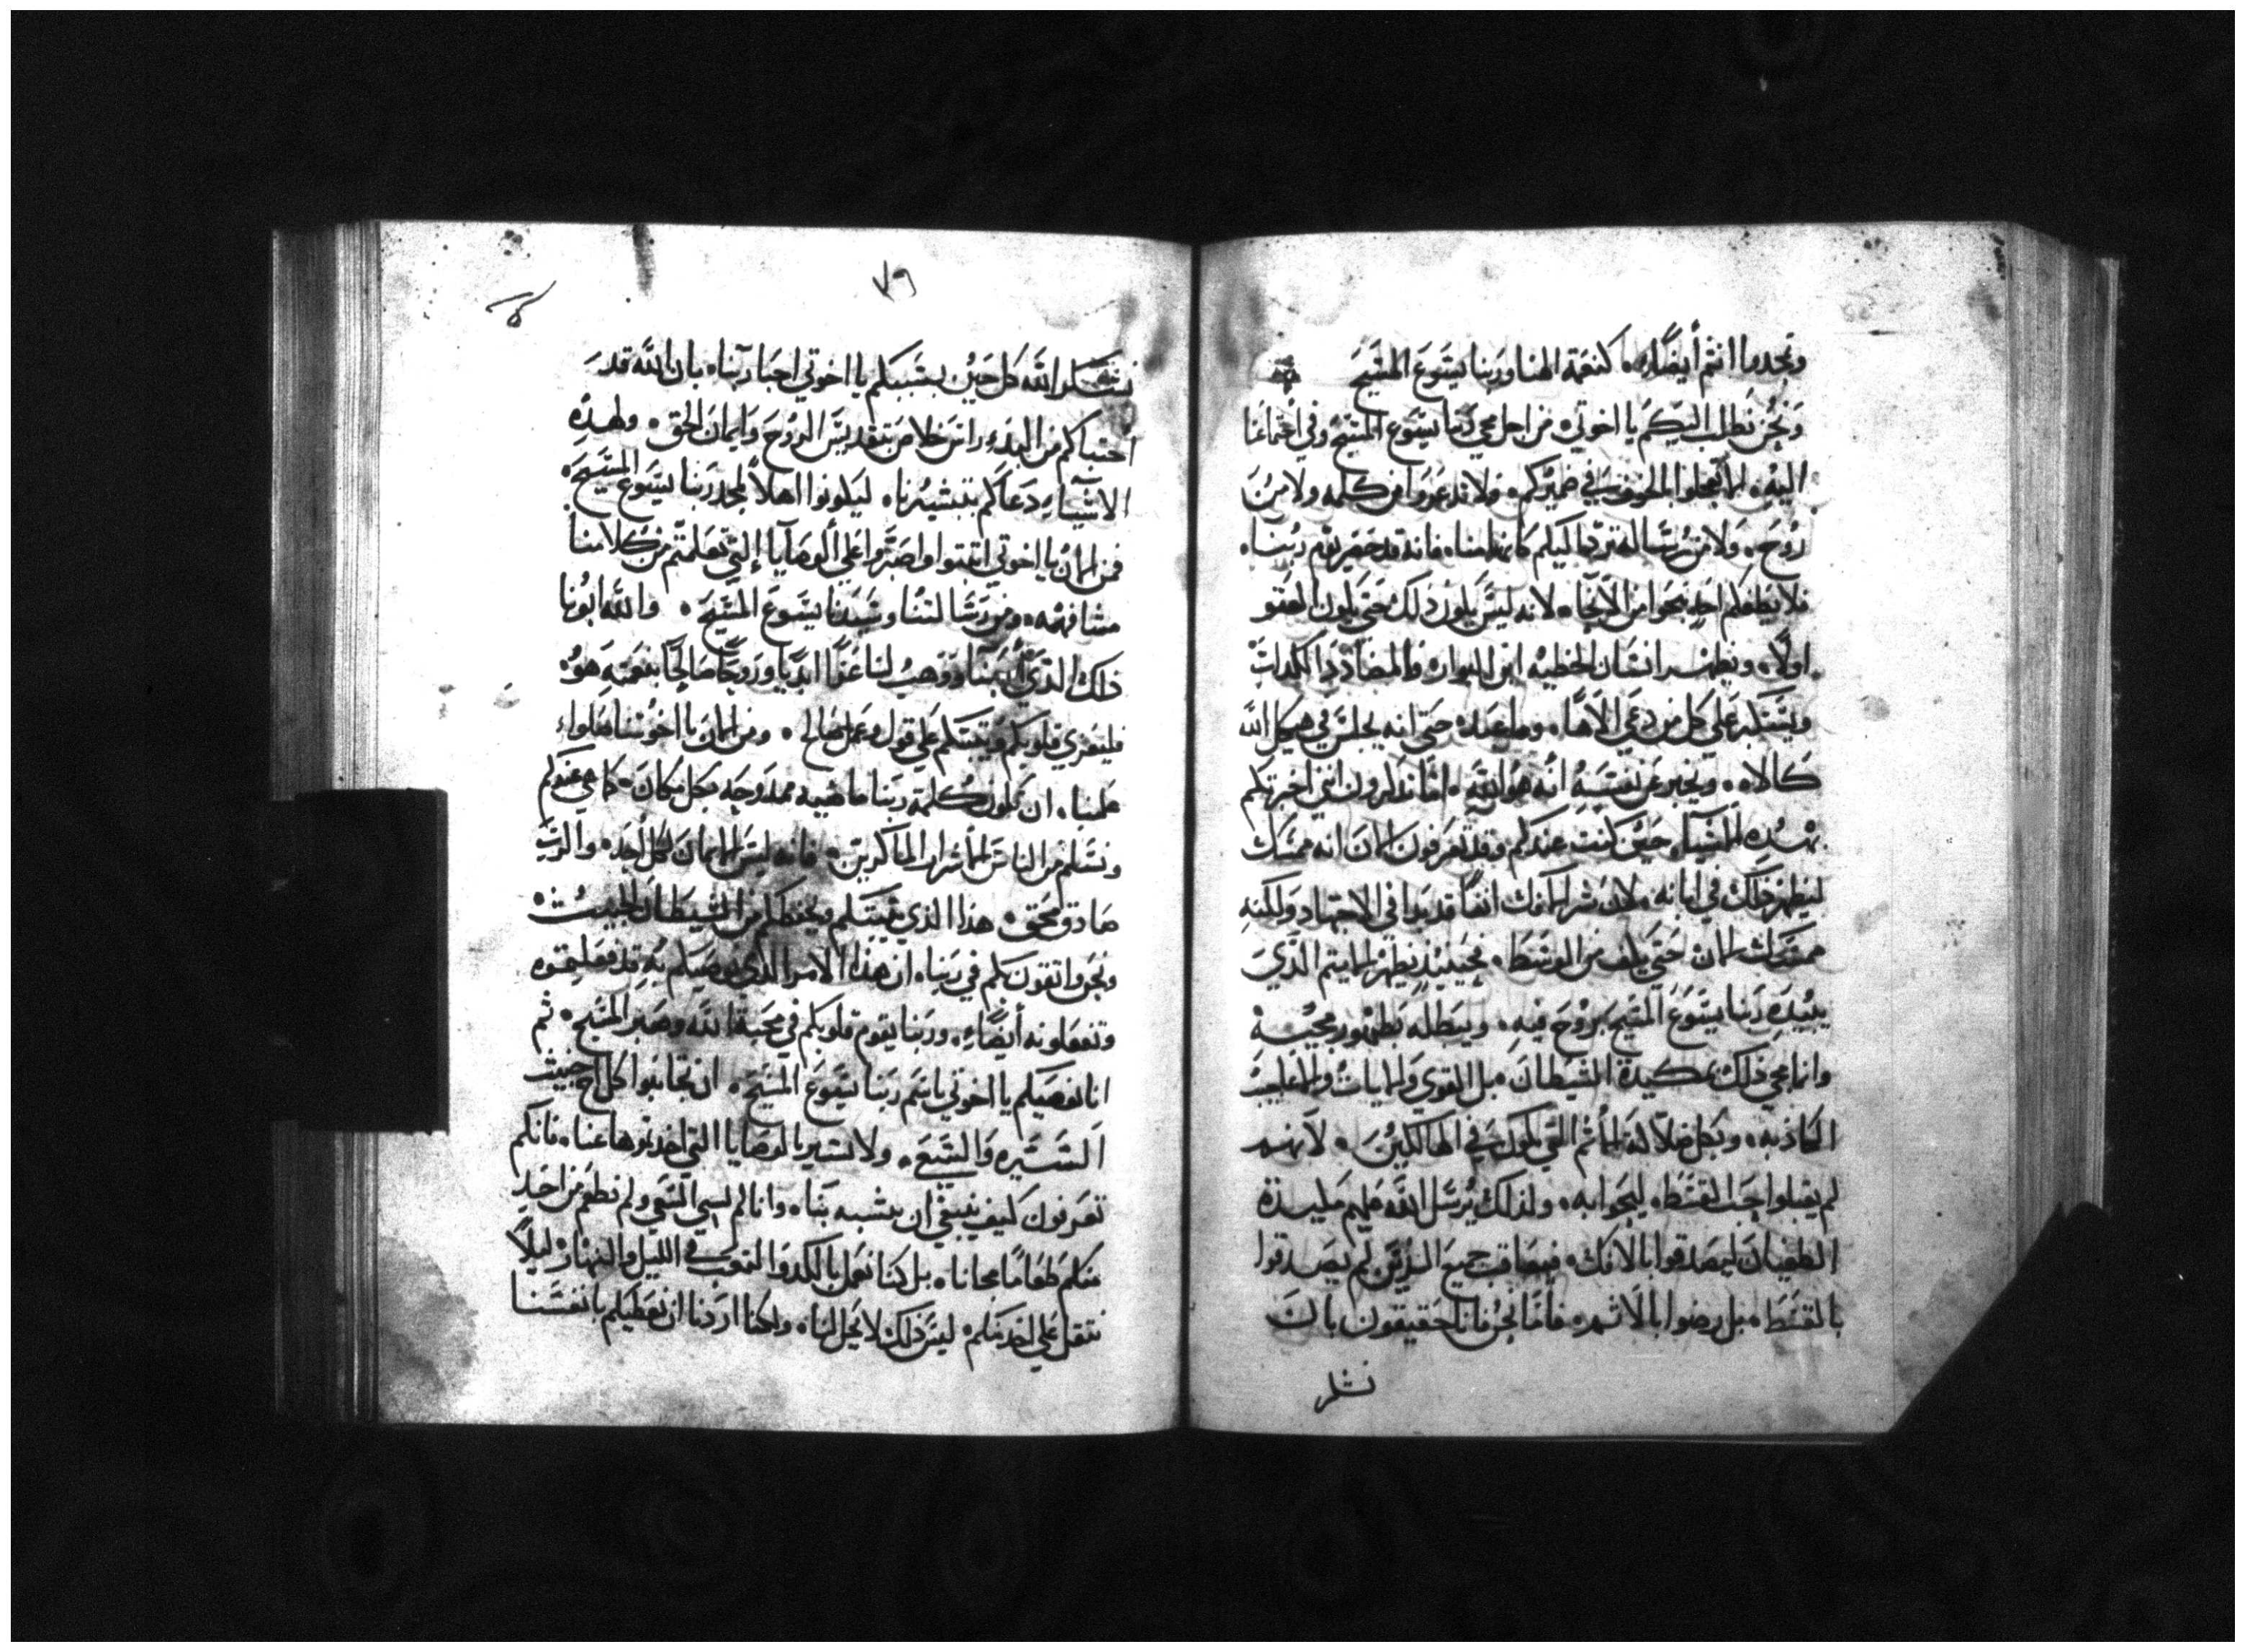 وتمجدوا انتم أيضًا به كنعمة الهنا وربنا يسَوعَ المسَيحَ
وَنحُن نَطلب اليَكم يا اخوتي من اجل مجي رَبنا يسَوع المسَيحَ وفي اجتماعَنا
اليهِ لا تجعلوا الخوف في ضميركم ولا تدعروا من كلمه ولا مِنَ
رُوحَ ولا منَ رسَاله ترد اليكم كانها منا فانه قد حضر يوم ربنا
فلا يَطغكم احد بنحوا من الانحاء لانه ليسَ يكون ذلك حتى يكون العتو
اولاً ويظهر انسَان الخطيه ابن البوار والمضادد الكداب
ويتَكبر على كل من دعَي الاهًا ومَا عبد حتى انه يجلسَ في هيكل الله
كالاه ويخبر عَن نفسَهِ انه هوَ الله اما تذكرون اني اخبرتكم
بهذه الاشيآء حَين كنت عندكم وقد تعَرفون الان انه ممسَك
ليظهر ذلك في ابانه لان سَر الافك انفًا قد بدا في الاجتهاد ولكنهِ
ممسَك الان حَتى يلف من الوسَط فحَينيذ يظهر الايتم الذَي
يبيدَه ربنا يسَوَع المسَيح بَروحَ فيهِ ويبطله بَظهور مجيه
وانما مجي ذلك بمكيدة الشيطان بل القوي والايات والاعَاجيب
الكاذبه وبكل ضلالة الأثم التي تكون في الهالكين لانهم
لم يقبلوا حَب القسَط ليحَيوا به ولذلك يُرسَل الله عَليهم مكيدة
الطغيان ليصَدقوا بالافك فيعَاقب جميعَ الذين لم يصَدقوا
بالقسَط بل رضوا بالاثم فأما نَحُن فانا حَقيقون بان
نشكر
٧٩
نشَكر الله كل حَين بسَببكم يا اخوتي احَبا ربنا بان الله قد
اجتباكم من البدء راسَ خلاص بتقديسَ الروُحَ وايمانَ الحَق ولهذهِ
الاشيآء دعَاكم بتبشيرنا ليكونوا اهلاً لمجد ربنا يسَوع المسَيحَ
فمن الان يا اخوتي اثبتوا واصَبَروا علي الوصَايا التي تعَلمتم من كلامنا
مشافهه ومن رسَالتنا وسَيدنا يسَوعَ المسَيحَ والله ابُونا
ذلك الذي أحَبنا وَوَهب لنا عَزاً ابَديا ورَوجًا صَالحًا بنعمته هُو
فليعَزي قلوبَكم ويَثبتكم علي قول وعمل صَالح ومن الان يا اخُوتنا صَلوا
عَلينا ان تكون كلمة ربَنا ماضيه ممدَوحَه بكل مكان كما هي عندكم
ونسَلم من الناسَ الأشرار الماكرين فانه ليسَ الايمان لكل أحَد والربَ
صَادق محَق هذا الذي يثبتَكم ويحفظكم من الشيطان الخبيث
ونحَن واثقون بكم في ربنا ان هذا الامر الذي نوصَيكم به قد فعَلتموه
وتفعَلونه أيضًا وربَنا يقوم قلوبَكم في محَبة الله وصَبر المسَيح ثم
انا نوصَيكم يا اخوتي باسَم ربَنا يسَوعَ المسَيحَ ان تجانبَوا كل اخ خبيث
السَيره والشَنعَ ولا يسَير بالوصَايا التي اخدتموها عَنا فانكم
تعَرفون كيف ينبغي ان يتشبه بَنا وانا لم نسي السَعي ولم نطعَم من احَد
منكم طعَامًا مجانا بل كنا نعَمل بالكد والتعَب في الليل والنهار ليلاً
نثقل علي احَد منكم ليسَ ذلك لانه لا يَحل لنا ولكنا اردنا ان نعَطيكم بانفسَنا